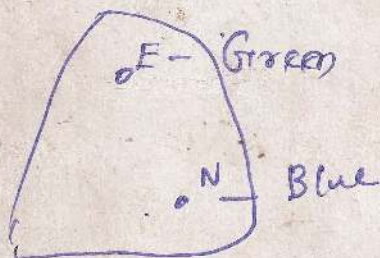 E - Green
N - Blue